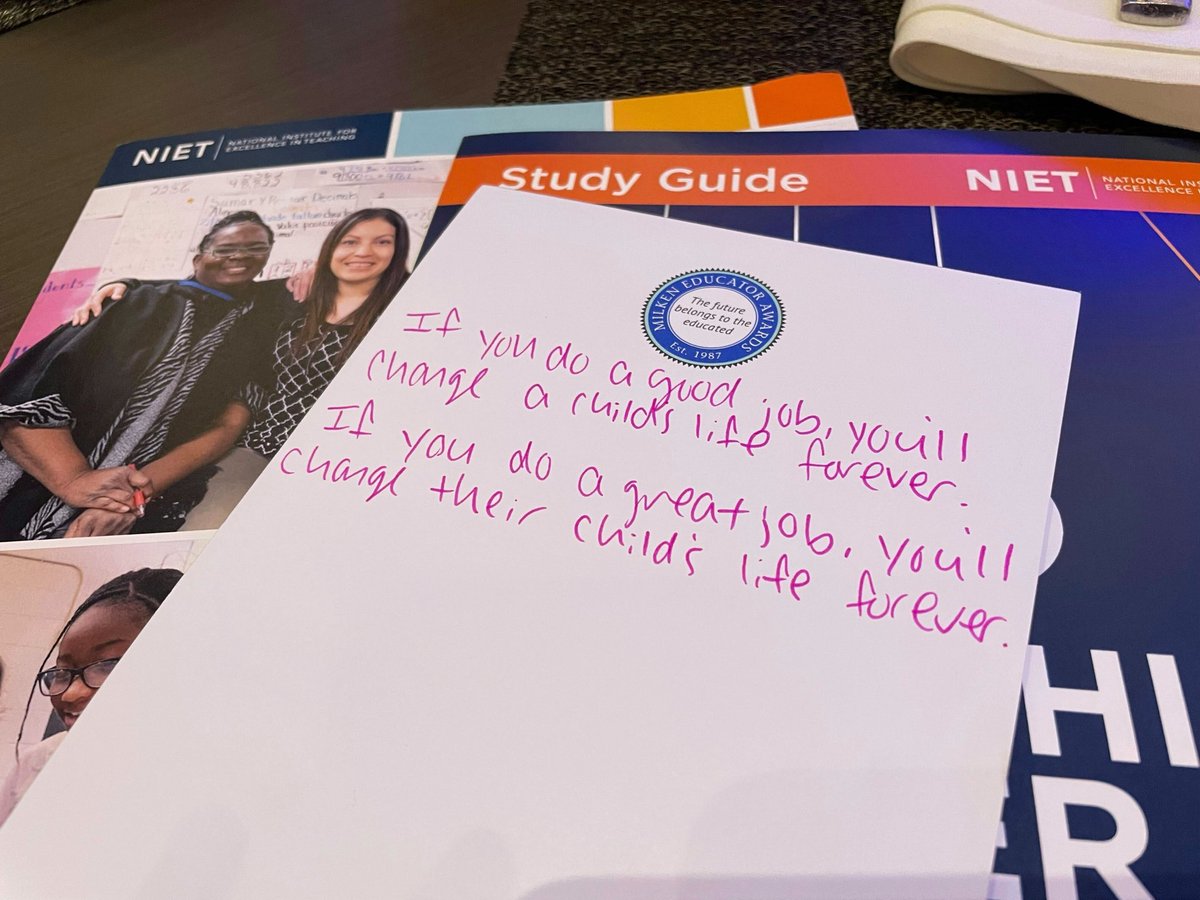 NIET
NATIONAL INSTITUTE FOR
EXCELLENCE IN TEACHING
Study Guide
NIET
NATIONAL
EXCELLENCE
MILKEN EDUCATOR AWARDS
The future
belongs to the
educated
Est. 1987
If you do a good job, you'll
change a child's life forever.
If you do a great job, you'll
change their child's life forever.
HI
ER